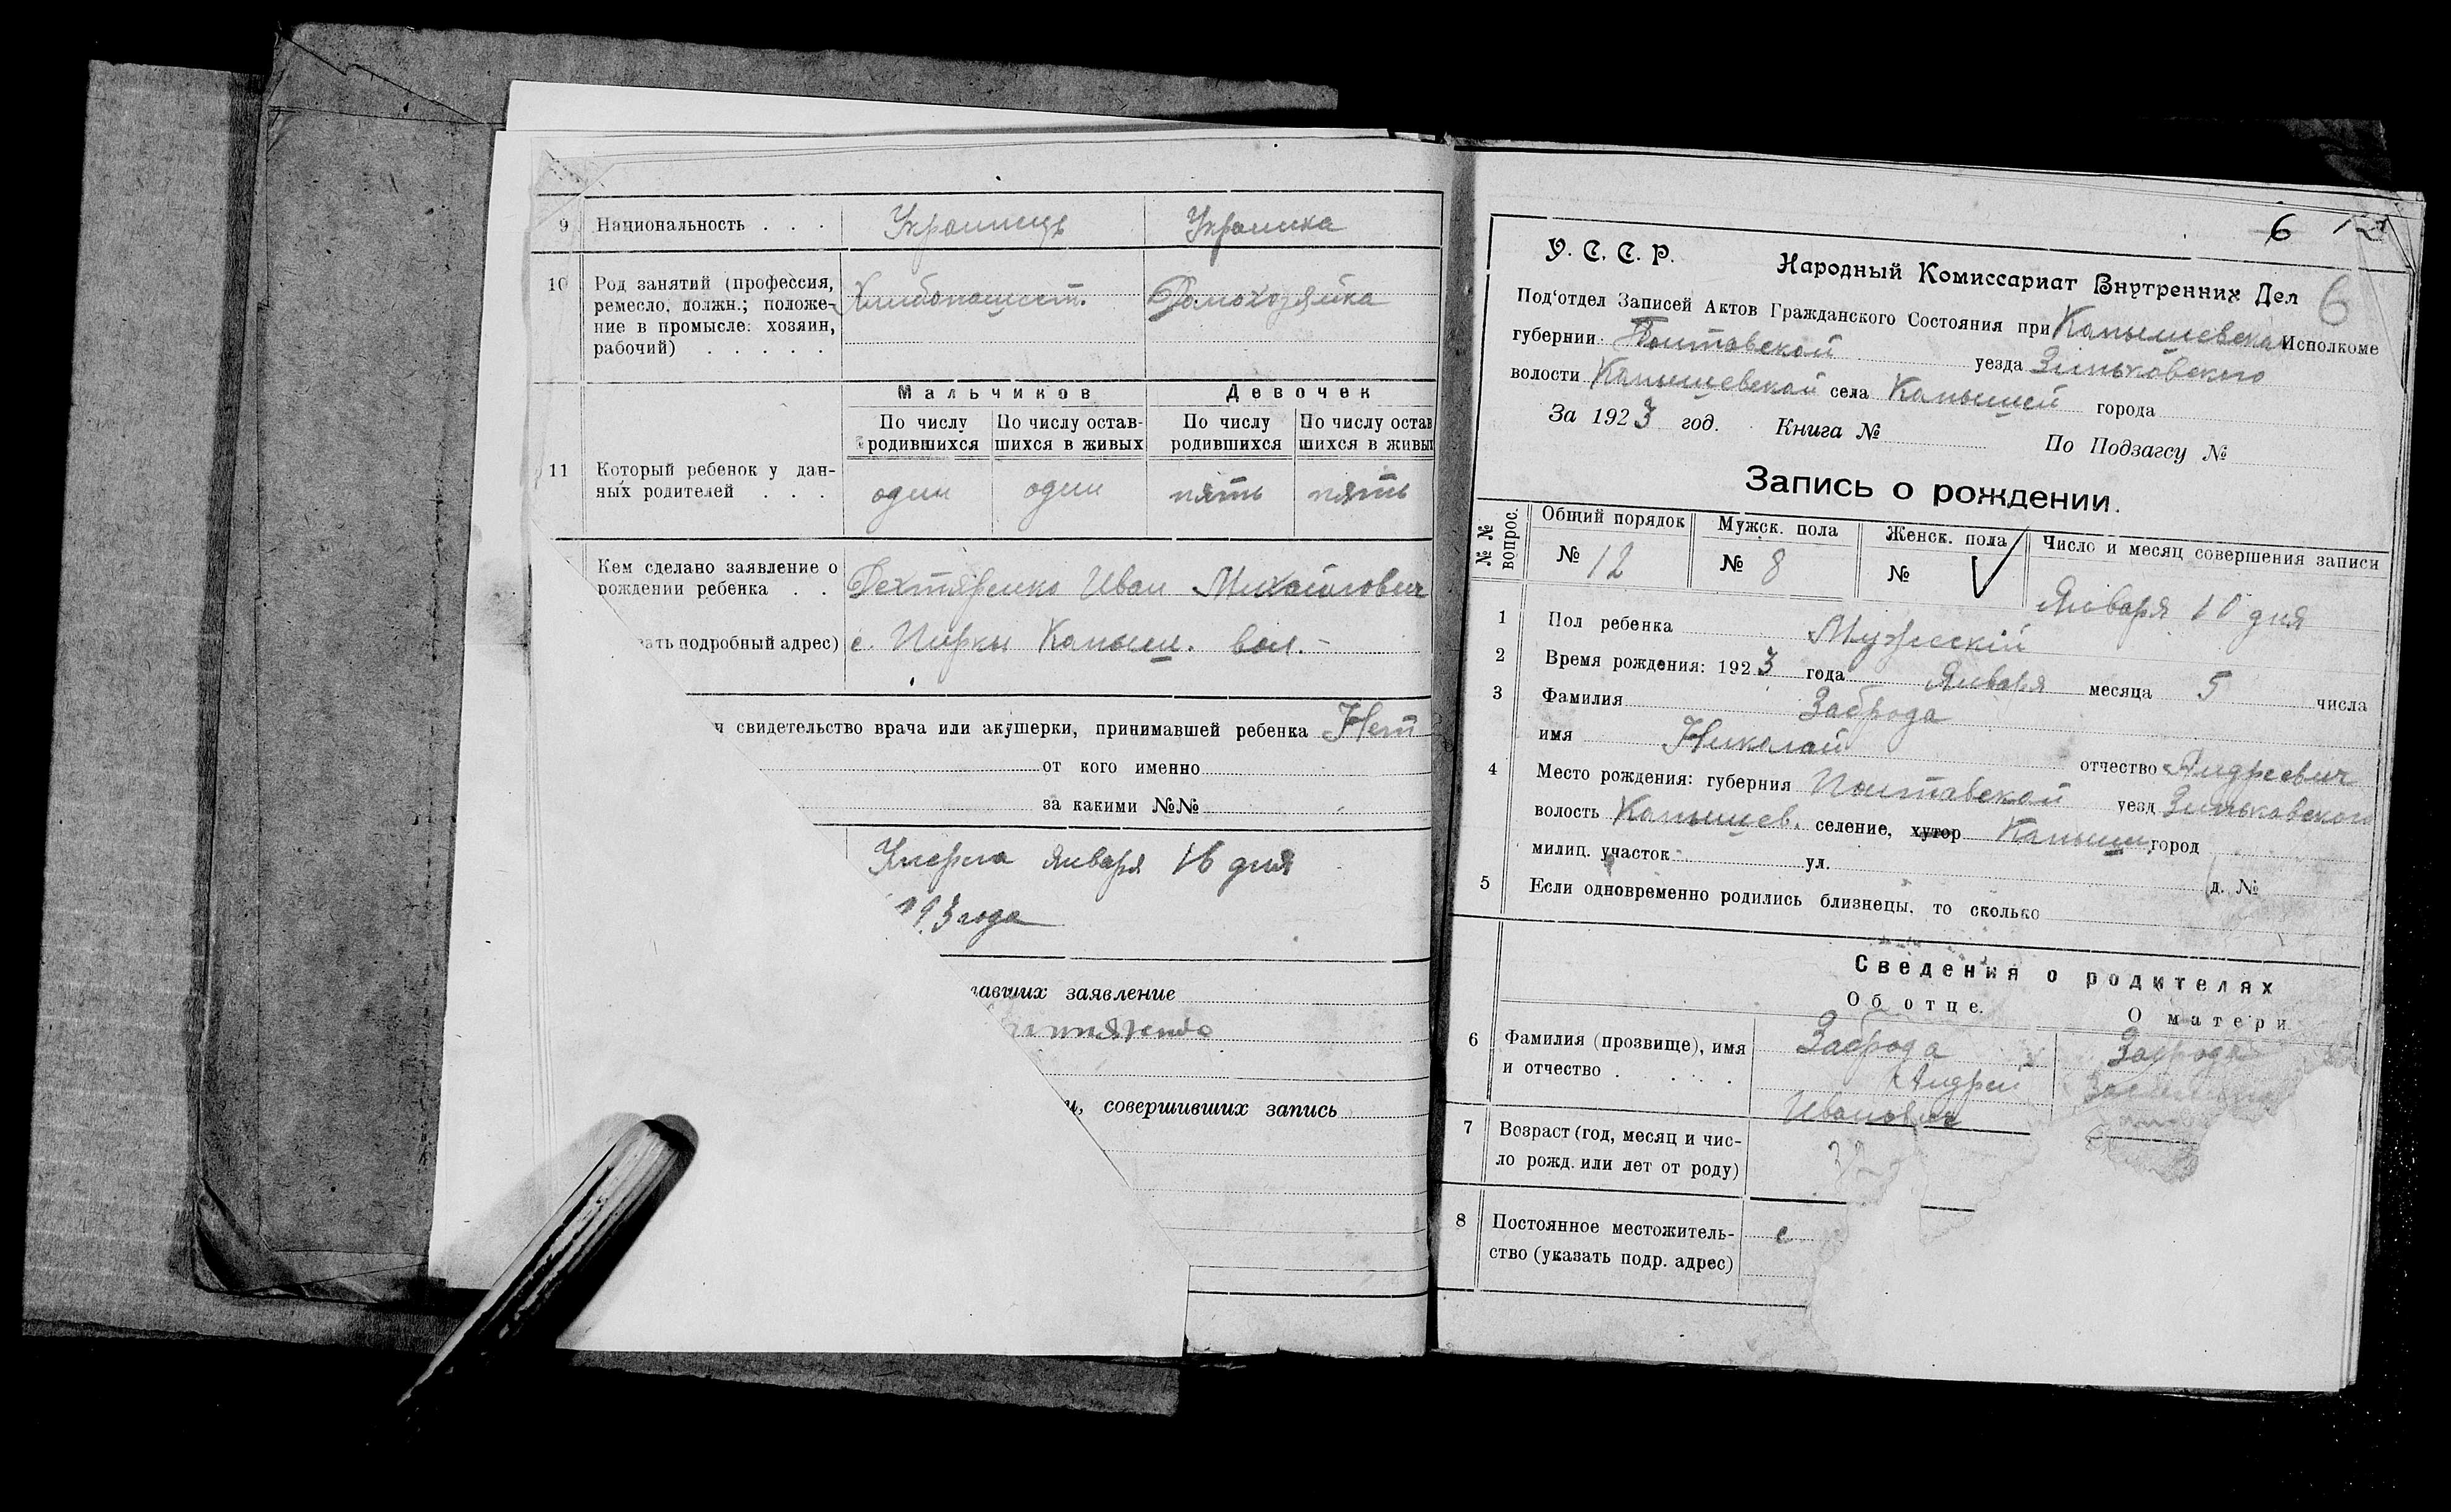 9 Национальность . . . Украинець Украинка
10 Род занятий (профессия, Хлибопашест. Домохозяйка
ремесло, должн.; положе-
ние в промысле: хозяин,
рабочий) . . . . .
Мальчиков Девочек
По числу родившихся По числу оставшихся в живых По числу родившихся По числу остав шихся в живы
11 Который ребенок у дан-
ных родителей . . . один один пять пять
Кем сделано заявление о
рождении ребенка . . Дехтяренко Иван Михайлович
зать подробный адрес) с. Пирки Камыш. вол.
и свидетельство врача или акушерки, принимавшей ребенка Нет
от кого именно
за какими №№
Умерла января 16 дня
года
лавших заявление
и, совершивших запись
6 12
6
У. С. С. Р. Народный Комиссариат Внутренних Дел
Под'отдел Записей Актов Гражданского Состояния при Исполкоме
губернии Полтавской уезда Зиньковского
волости Камышевской села Камышей города
За 1923 год. Книга № По Подзагсу №
Запись о рождении.
№ № вопрос. Общий порядок Мужск. пола Женск. пола Число и месяц совершения записи
№ 12 № 8 № Января 10 дня
1 Пол ребенка Мужский
2 Время рождения: 1923 года Января месяца 5 числа
3 Фамилия Заброда
имя Николай отчество Андреевич
4 Место рождения: губерния Полтавской уезд Зиньковского
волость Камышев. селение, хутор Камыши город
милиц. участок ул. д. №
5 Если одновременно родились близнецы, то сколько
Сведения о родителях
Об отце. О матери
6 Фамилия (прозвище), имя Заброда Заброда
и отчество . . . . Андрей
Иванович
7 Возраст (год, месяц и чис-
ло рожд. или лет от роду) 32
8 Постоянное местожитель- с
ство (указать подр. адрес)